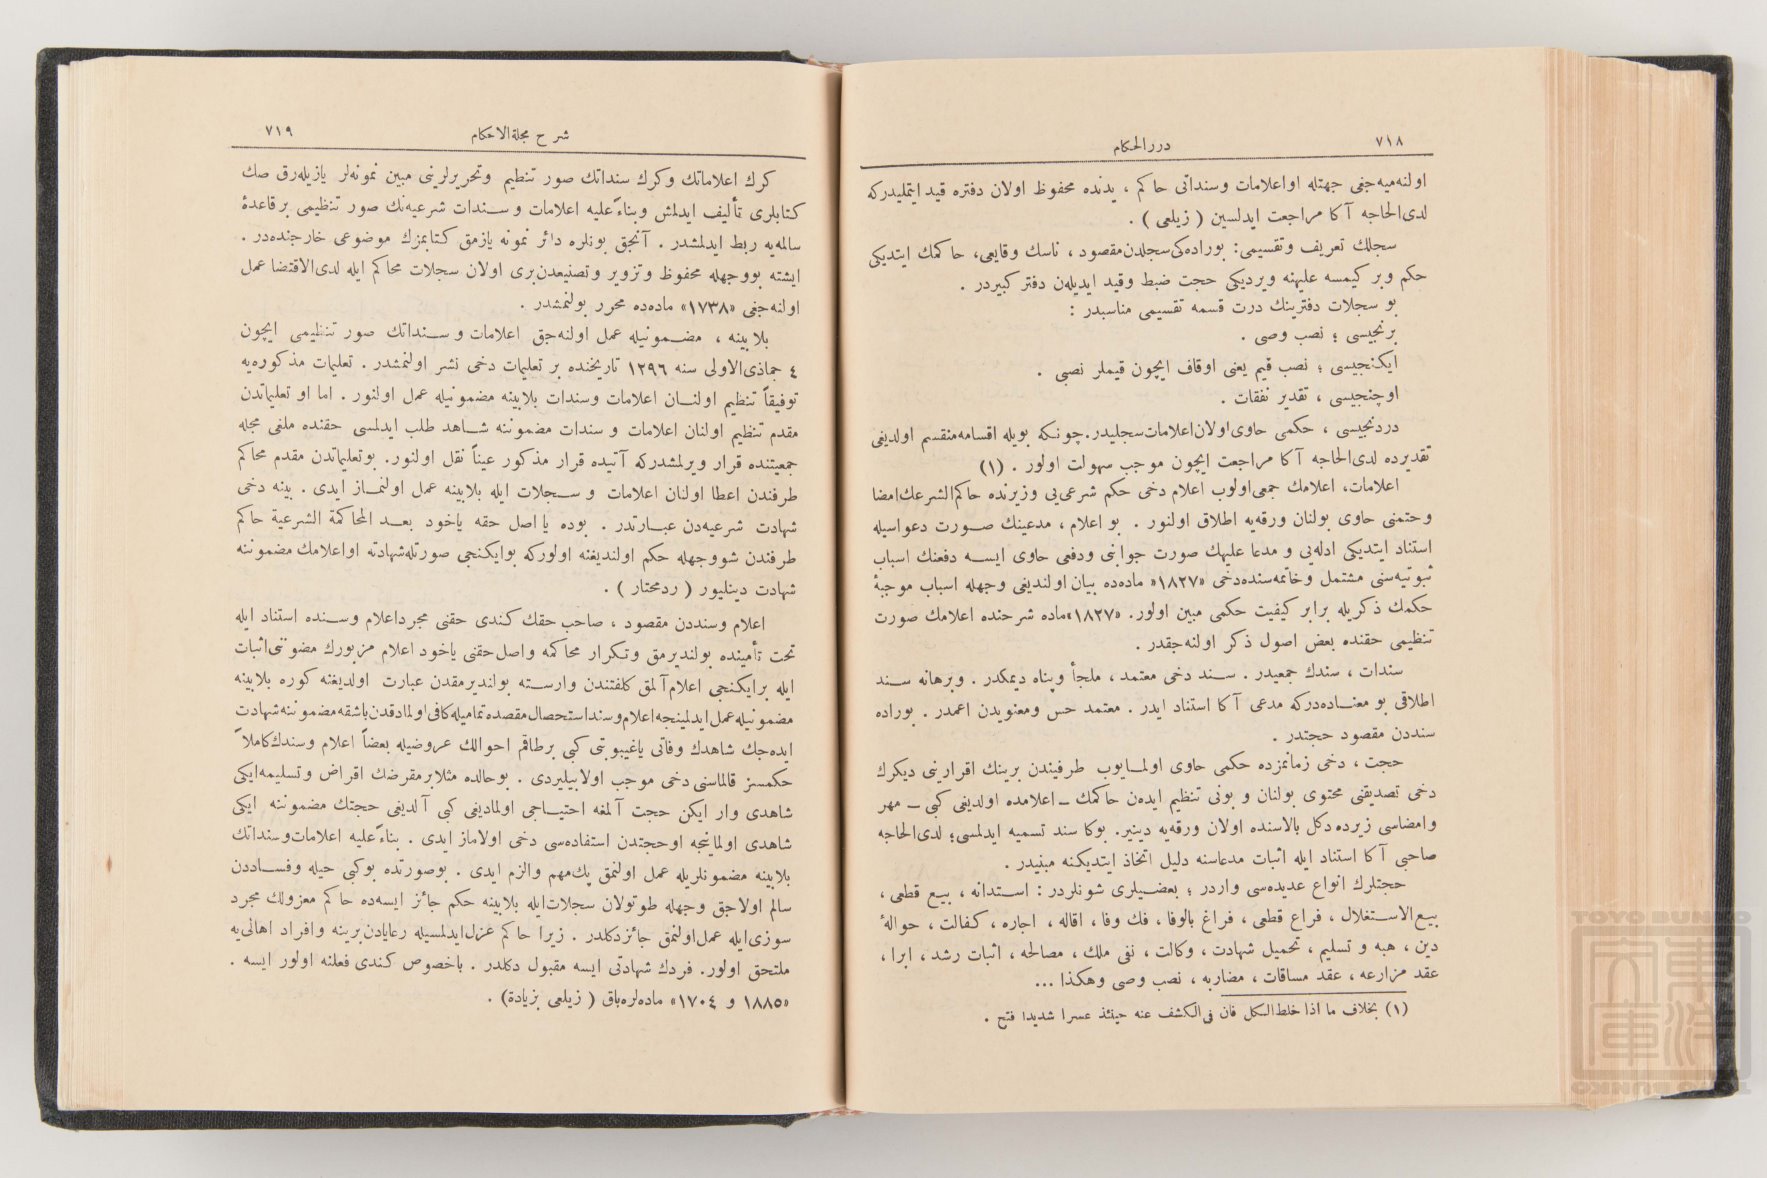 ٧١٨
دررالحكام
اولنه‌ميه‌جغى جهتله اواعلامات وسنداتى حاكم ، يدنده محفوظ اولان دفتره قيد ايتمليدركه
لدى‌الحاجه آ كا مراجعت ايدلسين ( زيلعى ) .
سجلك تعريف وتقسيمى: بوراده‌كى سجلدن مقصود ، ناسك وقايعى، حاكمك ايتديكى
حكم وبر كيمسه عليهنه ويرديكى حجت ضبط وقيد ايديلەن دفتر كبيردر .
بو سجلات دفترينك درت قسمه تقسيمى مناسبدر :
برنجيسى ؛ نصب وصى .
ايكنجيسى ؛ نصب قيم يعنى اوقاف ايچون قيملر نصبى .
اوچنجيسى ، تقدير نفقات .
دردنجيسى ، حكمى حاوى اولان اعلامات سجليدر. چونكه بويله اقسامه منقسم اولديغى
تقديرده لدى‌الحاجه آ كا مراجعت ايچون موجب سهولت اولور . (١)
اعلامات، اعلامك جمعى اولوب اعلام دخى حكم شرعى‌يى وزيرنده حاكم الشرعك امضا
وختمنى حاوى بولنان ورقه‌يه اطلاق اولنور . بو اعلام ، مدعينك صورت دعواسيله
استناد ايتديكى ادله‌يى و مدعا عليهك صورت جوابنى ودفعى حاوى ايسه دفعنك اسباب
ثبوتيه‌سنى مشتمل وخاتمه‌سنده‌دخى «١٨٢٧» ماده‌ده بيان اولنديغى وجهله اسباب موجبهٔ
حكمك ذكريله برابر كيفيت حكمى مبين اولور. «١٨٢٧» ماده شرحنده اعلامك صورت
تنظيمى حقنده بعض اصول ذكر اولنه‌جقدر .
سندات ، سندك جمعيدر . سند دخى معتمد ، ملجأ وپناه ديمكدر . وبرهانه سند
اطلاقى بو معناده‌دركه مدعى آ كا استناد ايدر . معتمد حس ومعنويدن اعمدر . بوراده
سنددن مقصود حجتدر .
حجت ، دخى زمانمزده حكمى حاوى اولمايوب طرفيندن برينك اقرارينى ديكرك
دخى تصديقنى محتوى بولنان و بونى تنظيم ايدەن حاكمك ــ اعلامده اولديغى كبى ــ مهر
وامضاسى زيرده دكل بالاسنده اولان ورقه‌يه دينير. بوكا سند تسميه ايدلمسى؛ لدى‌الحاجه
صاحبى آ كا استناد ايله اثبات مدعاسنه دليل اتخاذ ايتديكنه مبنيدر .
حجتلرك انواع عديده‌سى واردر ؛ بعضيلرى شونلردر : استدانه ، بيع قطعى ،
بيع الاستغلال ، فراغ قطعى ، فراغ بالوفا ، فك وفا ، اقاله ، اجاره ، كفالت ، حوالهٔ
دين ، هبه و تسليم ، تحميل شهادت ، وكالت ، نفى ملك ، مصالحه ، اثبات رشد ، ابرا ،
عقد مزارعه ، عقد مساقات ، مضاربه ، نصب وصى وهكذا ...
(١) بخلاف ما اذا خلط الكل فان فى الكشف عنه حينئذ عسرا شديدا فتح .
شرح مجلة الاحكام
٧١٩
كرك اعلاماتك وكرك سنداتك صور تنظيم وتحريرلرينى مبين نمونه‌لر يازيله‌رق صك
كتابلرى تأليف ايدلمش وبناءً عليه اعلامات و سندات شرعيه‌نك صور تنظيمى برقاعدهٔ
سالمه‌يه ربط ايدلمشدر . آنجق بونلره دائر نمونه يازمق كتابمزك موضوعى خارجنده‌در .
ايشته بووجهله محفوظ وتزوير وتصنيعدن برى اولان سجلات محاكم ايله لدى‌الاقتضا عمل
اولنه‌جغى «١٧٣٨» ماده‌ده محرر بولنمشدر .
بلا بينه ، مضمونيله عمل اولنه‌جق اعلامات و سنداتك صور تنظيمى ايچون
٤ جماذى‌الاولى سنه ١٢٩٦ تاريخنده بر تعليمات دخى نشر اولنمشدر . تعليمات مذكوره‌يه
توفيقاً تنظيم اولنان اعلامات وسندات بلابينه مضمونيله عمل اولنور . اما او تعليماتدن
مقدم تنظيم اولنان اعلامات و سندات مضموننه شاهد طلب ايدلمسى حقنده ملغى مجله
جمعيتنده قرار ويرلمشدركه آتيده قرار مذكور عيناً نقل اولنور. بوتعليماتدن مقدم محاكم
طرفندن اعطا اولنان اعلامات و سجلات ايله بلابينه عمل اولنماز ايدى . بينه دخى
شهادت شرعيه‌دن عبارتدر . بوده يا اصل حقه ياخود بعد المحاكمة الشرعية حاكم
طرفندن شووجهله حكم اولنديغنه اولوركه بوايكنجى صورتله‌شهادته اواعلامك مضموننه
شهادت دينليور ( ردمحتار ) .
اعلام وسنددن مقصود ، صاحب حقك كندى حقنى مجرد اعلام وسنده استناد ايله
تحت تأمينده بولنديرمق وتكرار محاكمه واصل حقنى ياخود اعلام مزبورك مضموننى اثبات
ايله برايكنجى اعلام آلمق كلفتندن وارسته بولنديرمقدن عبارت اولديغنه كوره بلابينه
مضمونيله عمل ايدلمينجه اعلام وسند استحصال مقصده تماميله كافى اولمادقدن باشقه مضموننه شهادت
ايده‌جك شاهدك وفاتى ياغيبوبتى كبى برطاقم احوالك عروضيله بعضاً اعلام وسندك كاملاً
حكمسز قالماسنى دخى موجب اولابيليردى . بوحالده مثلا بر مقرضك اقراض وتسليمه ايكى
شاهدى وار ايكن حجت آلمغه احتياجى اولماديغى كبى آلديغى حجتك مضموننه ايكى
شاهدى اولماينجه اوحجتدن استفاده‌سى دخى اولاماز ايدى . بناءً عليه اعلامات وسنداتك
بلابينه مضمونلريله عمل اولنمق پك مهم والزم ايدى . بوصورتده بوكبى حيله وفساددن
سالم اولاجق وجهله طوتولان سجلات ايله بلابينه حكم جائز ايسه‌ده حاكم معزولك مجرد
سوزى ايله عمل اولنمق جائز دكلدر . زيرا حاكم عزل ايدلمسيله رعايادن برينه وافراد اهالى‌يه
ملتحق اولور. فردك شهادتى ايسه مقبول دكلدر . باخصوص كندى فعلنه اولور ايسه .
«١٨٨٥ و ١٧٠٤» ماده‌لره‌باق ( زيلعى بزيادة) .
TOYO BUNKO
東洋文庫
TOYO BUNKO